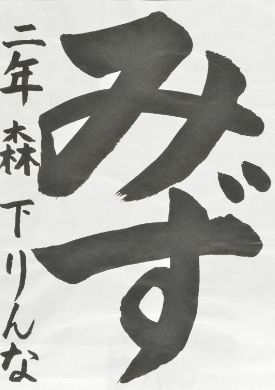 みず
二年 森下りんな